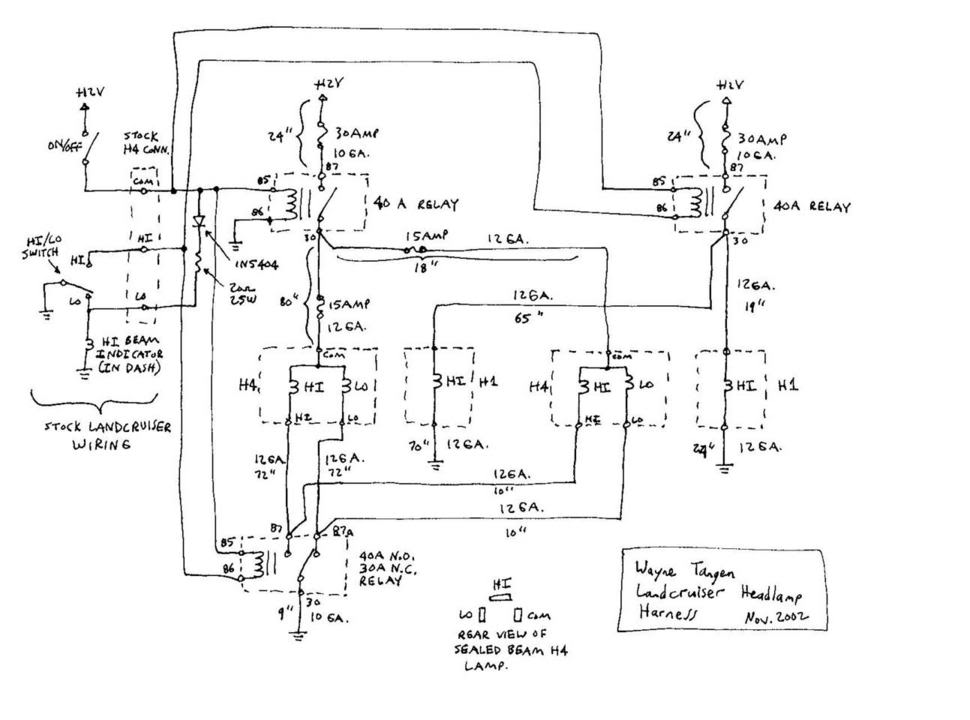 +12V
ON/OFF
STOCK
H4 CONN.
COM
HI
LO
HI/LO
SWITCH
HI
LO
HI BEAM
INDICATOR
(IN DASH)
STOCK LANDCRUISER
WIRING
1N5404
20Ω
25W
+12V
24"
30AMP
10GA.
87
85
86
30
40 A RELAY
15AMP
12GA.
18"
80"
15AMP
12GA.
+12V
24"
30AMP
10GA.
87
85
86
30
40A RELAY
12GA.
65"
12GA.
19"
COM
H4
HI
LO
HI
LO
HI
H1
70"
12GA.
COM
H4
HI
LO
HI
LO
HI
H1
24"
12GA.
12GA.
72"
12GA.
72"
12GA.
10"
12GA.
10"
87
87a
85
86
30
40A N.O.
30A N.C.
RELAY
9"
10GA.
HI
LO
COM
REAR VIEW OF
SEALED BEAM H4
LAMP.
Wayne Tangen
Landcruiser Headlamp
Harness
Nov. 2002